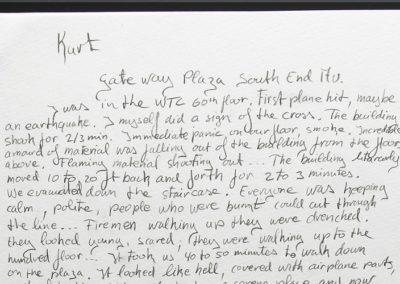 Kurt
Gateway Plaza South End Av.
I was in the WTC 60th floor. First plane hit, maybe
an earthquake. I myself did a sign of the cross. The building
shook for 2/3 min. Immediate panic on our floor, smoke. Incredible
amound of material was falling out of the building from the floor
above. Flaming material shooting out... The building litteraly
moved 10 to 20 ft back and forth for 2 to 3 minutes.
We evacuated down the staircase. Everyone was keeping
calm, polite, people who were burnt could cut through
the line... Firemen walking up they were drenched.
they looked young, scared, they were walking up to the
hundred floor... It took us 40 to 50 minutes to walk down
on the plaza. It looked like hell, covered with airplane parts,